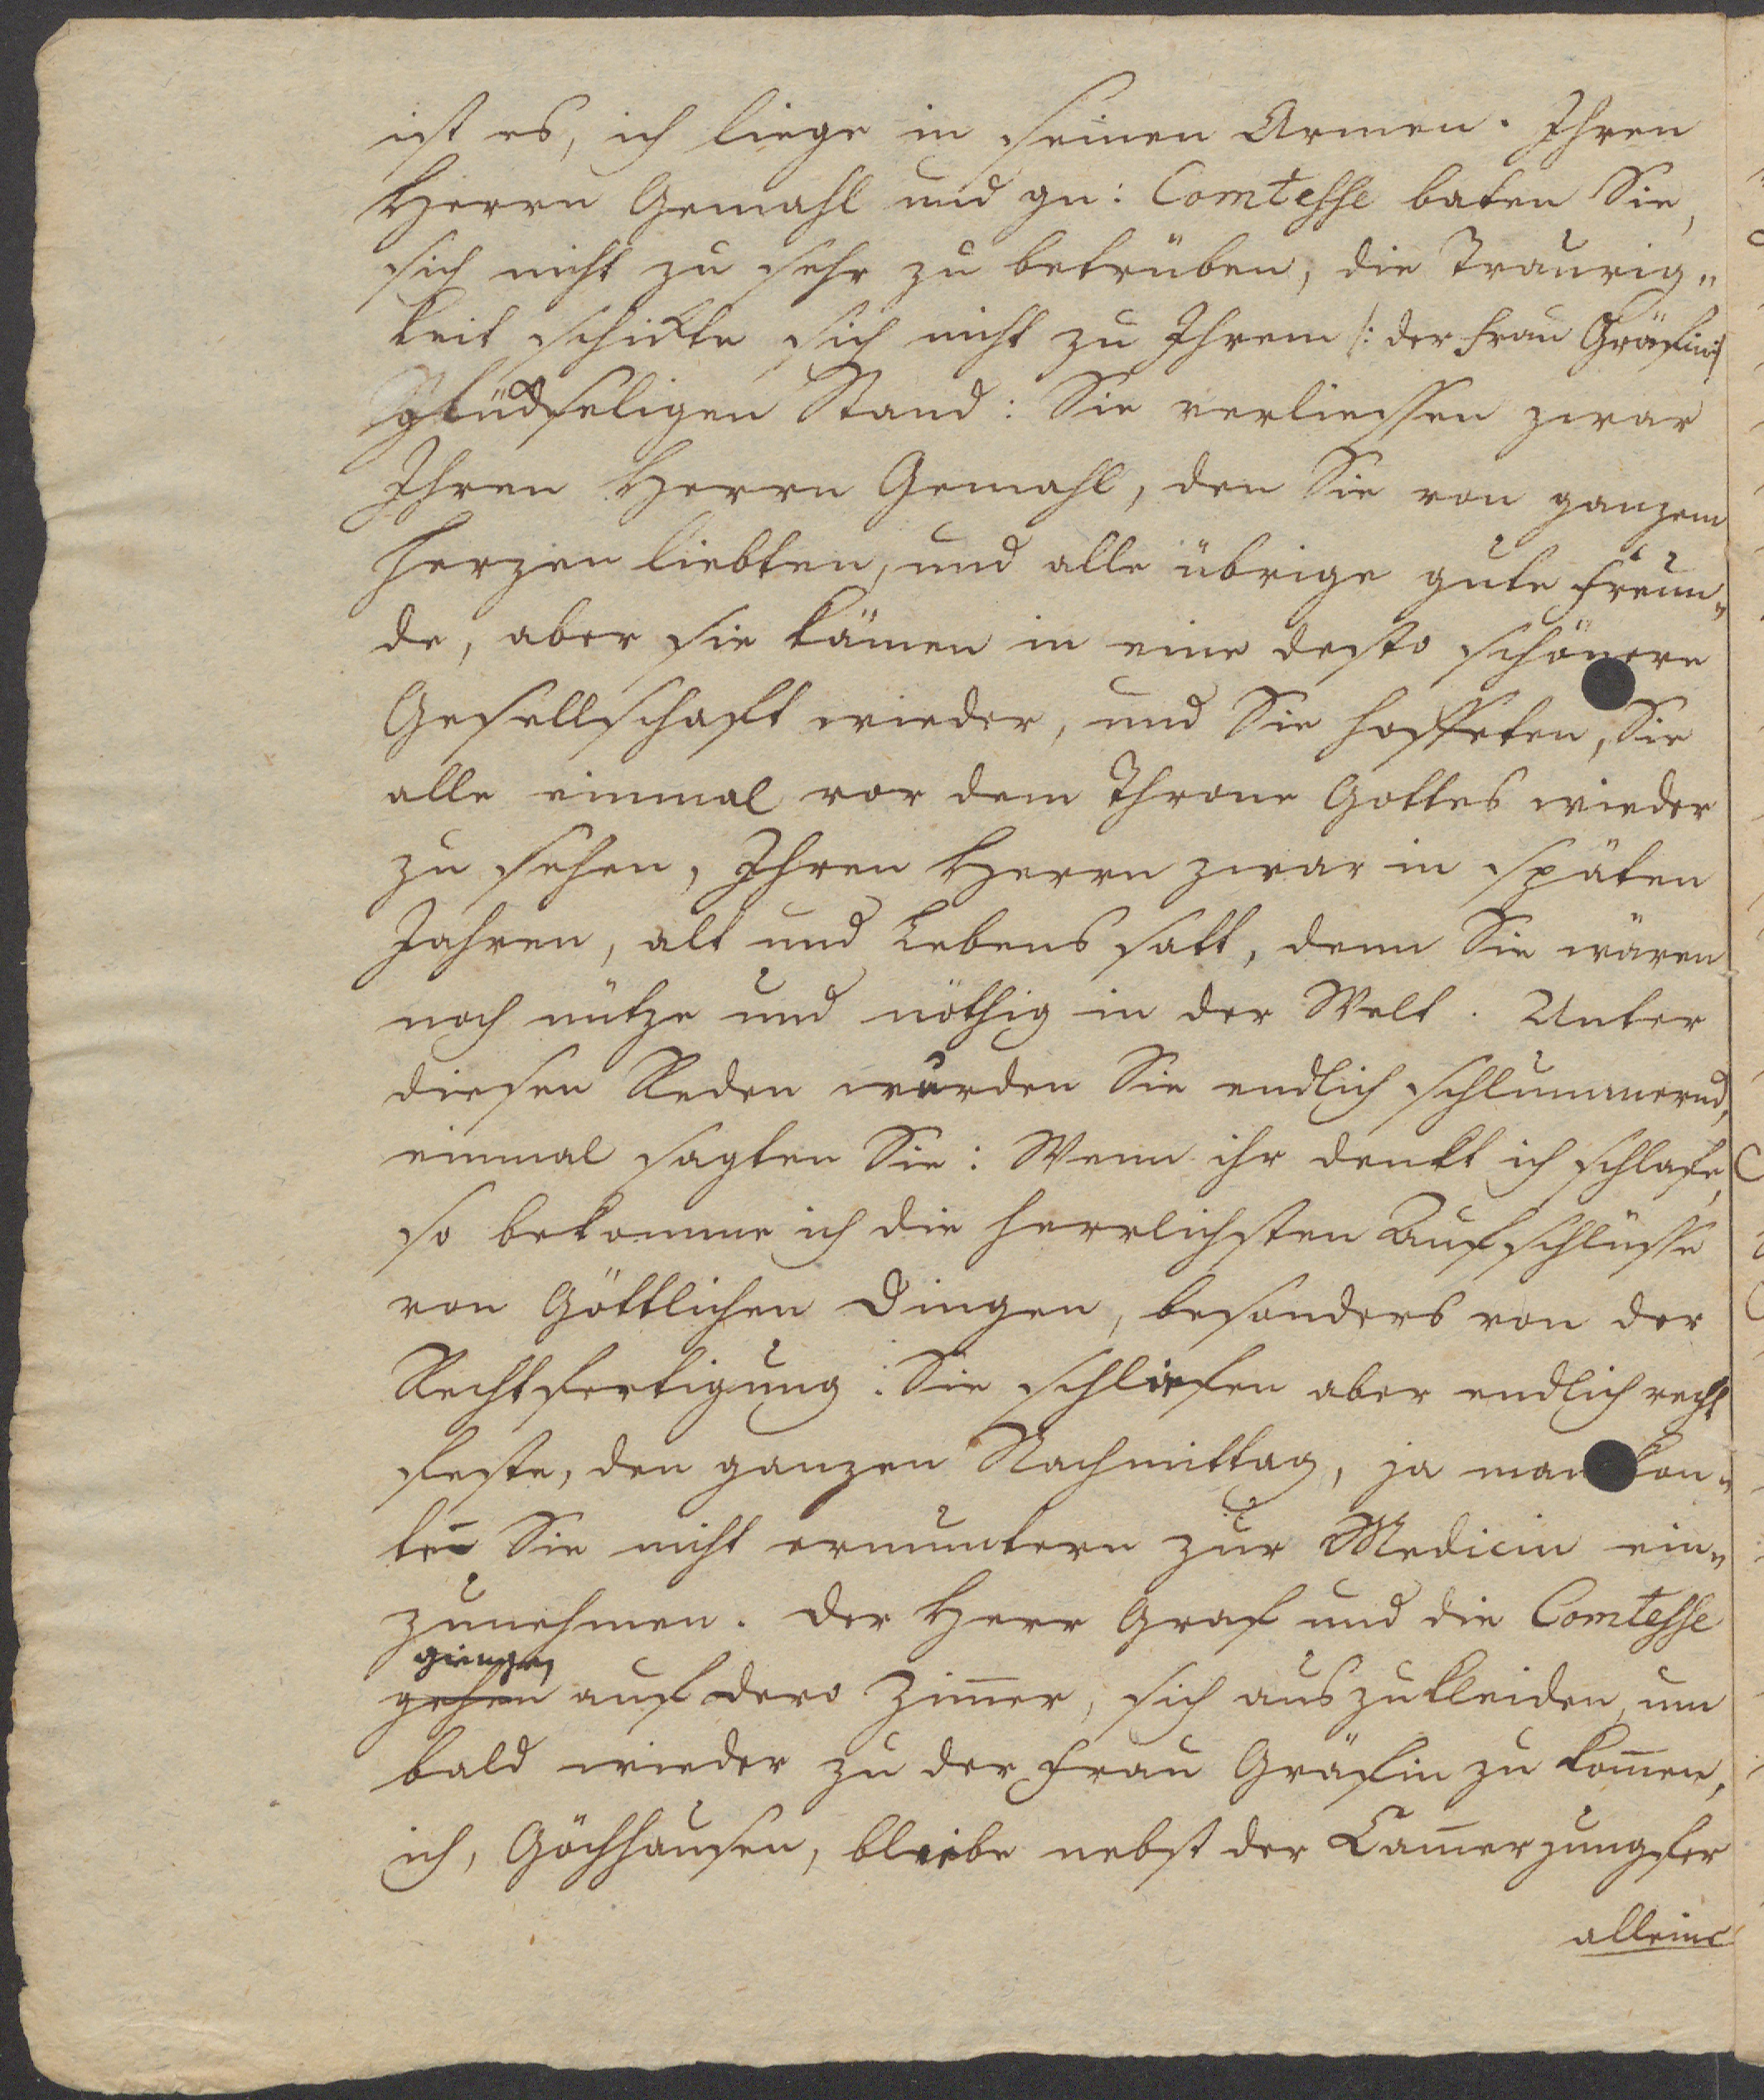 ist es, ich liege in seinen Armen. Ihren
Herrn Gemahl und gn: Comtesse baten Sie,
sich nicht zu sehr zu betrüben, die Traurig„
keit schickte sich nicht zu Ihrem /: der Frau Gräfin :/
glückseligen Stand: Sie verliessen zwar
Ihren Herrn Gemahl, den Sie von ganzem
Herzen liebten, und alle übrige gute Freun„
de, aber sie kämen in eine desto schönere
Gesellschaft wieder, und Sie hoffeten, Sie
alle einmal vor dem Throne Gottes wieder
zu sehen, Ihren Herrn zwar in späten
Jahren, alt und Lebens satt, denn Sie wären
noch nütze und nöthig in der Welt. Unter
diesen Reden wurden Sie endlich schlummernd,
einmal sagten Sie: Wenn ihr denkt ich schlafe,
so bekomme ich die herrlichsten Aufschlüsse
von Göttlichen Dingen, besonders von der
Rechtfertigung: Sie schliefen aber endlich recht
feste, den ganzen Nachmittag, ja man kon„
te Sie nicht ermuntern zur Medicin ein„
zunehmen. Der Herr Graf und die Comtesse
giengen
gehen auf dero Zim̅er, sich auszukleiden, um
bald wieder zu der Frau Gräfin zu kom̅en,
ich, Göchhausen, bleibe nebst der Cam̅erjungfer
alleine